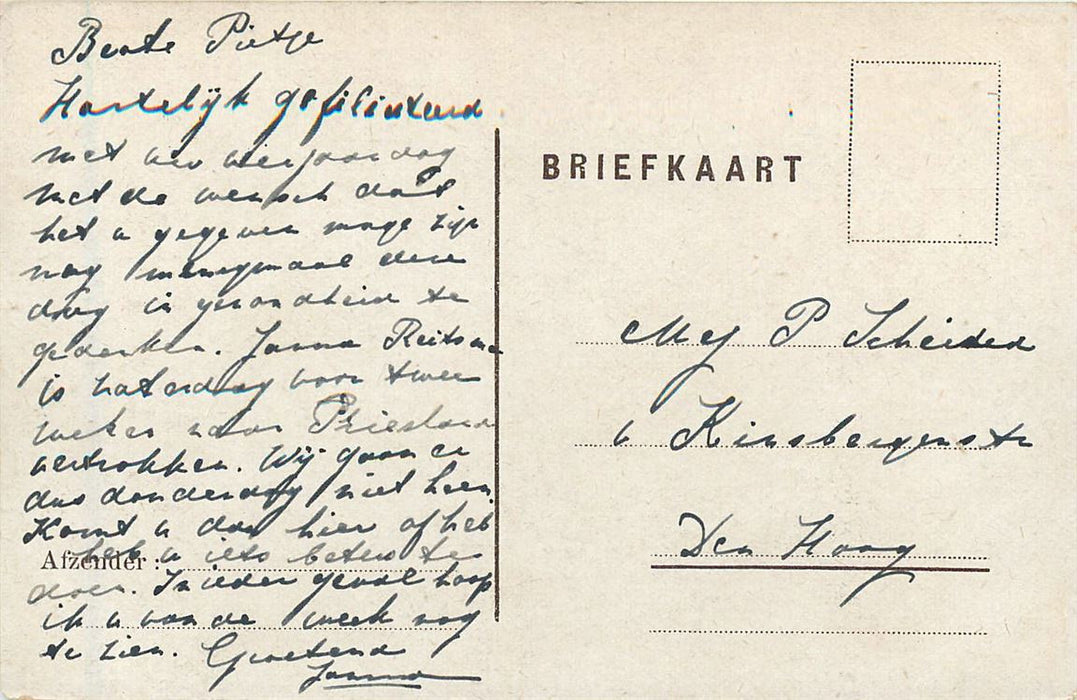 Beste Pietje
Hartelijk gefiliciteerd
met uw verjaardag
met de wensch dat
het u gegeven moge zijn
nog menigmaal deze
dag in gezondheid te
gedenken. Janna Reitsma
is zaterdag voor twee
weken naar Friesland
vertrokken. Wij gaan er
dus donderdag niet heen.
Komt u dan hier of heb
heb u iets beters te
doen. In ieder geval hoop
ik u van de week nog
te zien. Groetend
Janna
Afzender:
BRIEFKAART
Mej P Scheided
v Kinsbergenstr
Den Haag